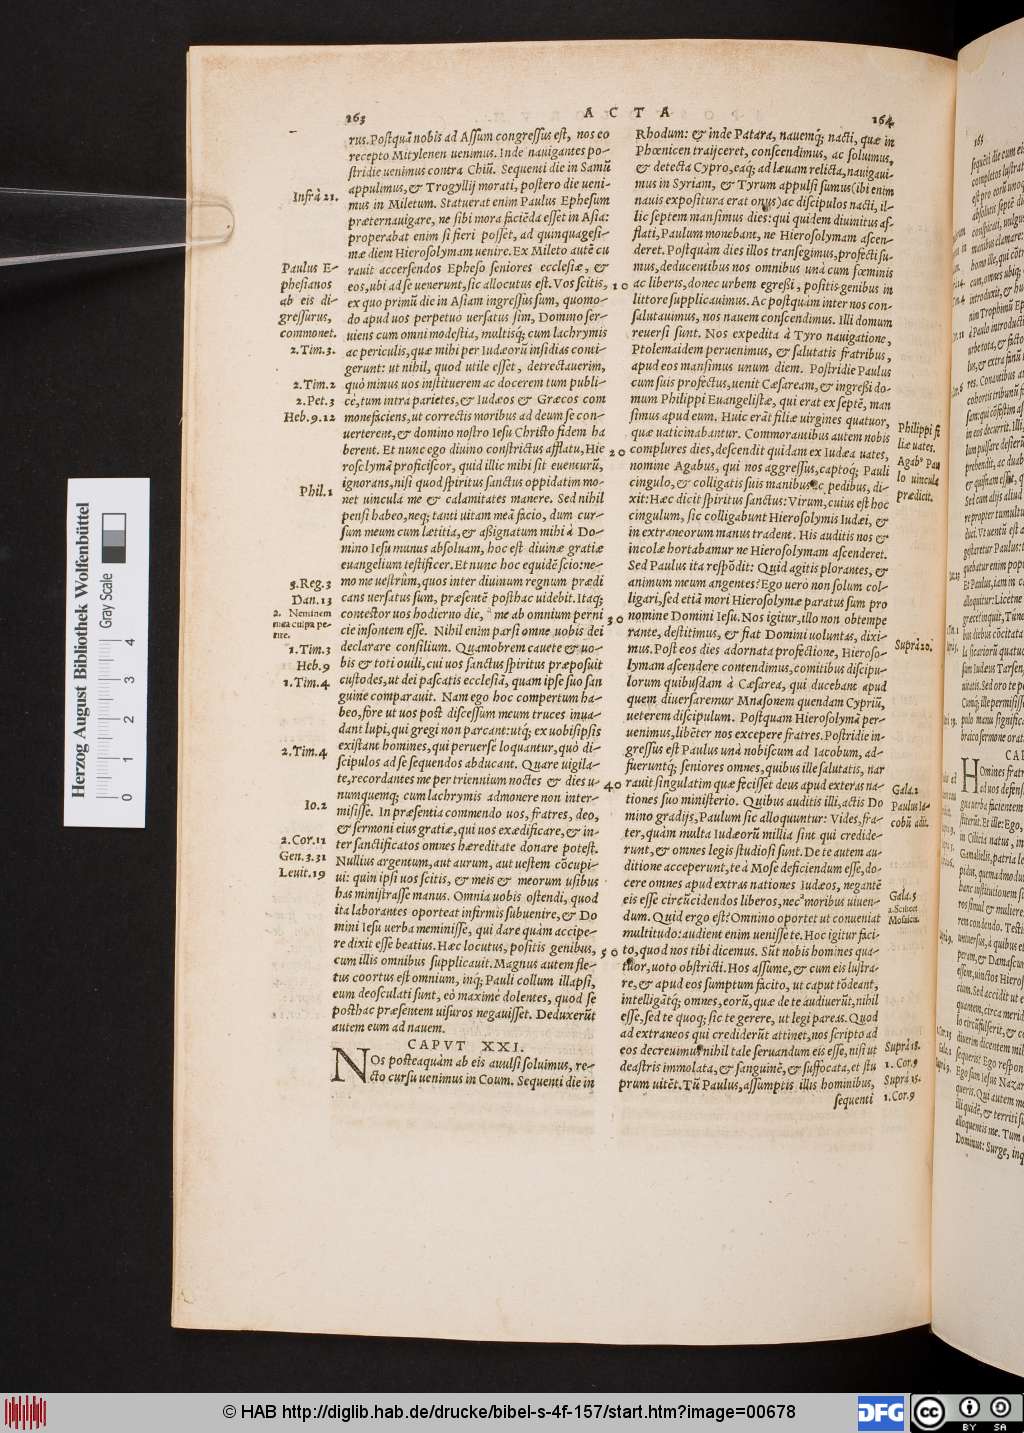 163
ACTA
164
rus. Postquā nobis ad Assum congressus est, nos eo
recepto Mitylenen uenimus. Inde nauigantes po-
stridie uenimus contra Chiū. Sequenti die in Samū
appulimus, & Trogyllij morati, postero die ueni-
mus in Miletum. Statuerat enim Paulus Ephesum
præternauigare, ne sibi mora faciēda esset in Asia:
properabat enim si fieri posset, ad quinquagesi-
mæ diem Hierosolymam uenire. Ex Mileto autē cu
rauit accersendos Epheso seniores ecclesiæ, &
eos, ubi ad se uenerunt, sic allocutus est. Vos scitis,
ex quo primū die in Asiam ingressus sum, quomo-
do apud uos perpetuo uersatus sim, Domino ser-
uiens cum omni modestia, multisq; cum lachrymis
ac periculis, quæ mihi per Iudæorū insidias conti-
gerunt: ut nihil, quod utile esset, detrectauerim,
quò minus uos instituerem ac docerem tum publi-
cè, tum intra parietes, & Iudæos & Græcos com
monefaciens, ut correctis moribus ad deum se con-
uerterent, & domino nostro Iesu Christo fidem ha
berent. Et nunc ego diuino constrictus afflatu, Hie
rosolymā proficiscor, quid illic mihi sit euenturū,
ignorans, nisi quod spiritus sanctus oppidatim mo-
net uincula me & calamitates manere. Sed nihil
pensi habeo, neq; tanti uitam meā facio, dum cur-
sum meum cum lætitia, & assignatum mihi à Do-
mino Iesu munus absoluam, hoc est diuinæ gratiæ
euangelium testificer. Et nunc hoc equidē scio: ne-
mo me uestrûm, quos inter diuinum regnum prædi
cans uersatus sum, præsentē posthac uidebit. Itaq;
contestor uos hodierno die, me ab omnium perni
cie insontem esse. Nihil enim parsi omne uobis dei
declarare consilium. Quamobrem cauete & uo-
bis & toti ouili, cui uos sanctus spiritus præposuit
custodes, ut dei pascatis ecclesiā, quam ipse suo san
guine comparauit. Nam ego hoc compertum ha-
beo, fore ut uos post discessum meum truces inua-
dant lupi, qui gregi non parcant: utq; ex uobisipsis
existant homines, qui peruersè loquantur, quò di-
scipulos ad se sequendos abducant. Quare uigila-
te, recordantes me per triennium noctes & dies u-
numquemq; cum lachrymis admonere non inter-
misisse. In præsentia commendo uos, fratres, deo,
& sermoni eius gratiæ, qui uos exædificare, & in-
ter sanctificatos omnes hæreditate donare potest.
Nullius argentum, aut aurum, aut uestem cōcupi-
ui: quin ipsi uos scitis, & meis & meorum usibus
has ministrasse manus. Omnia uobis ostendi, quod
ita laborantes oporteat infirmis subuenire, & Do
mini Iesu uerba meminisse, qui dare quàm accipe-
re dixit esse beatius. Hæc locutus, positis genibus,
cum illis omnibus supplicauit. Magnus autem fle-
tus coortus est omnium, inq; Pauli collum illapsi,
eum deosculati sunt, eò maximè dolentes, quod se
posthac præsentem uisuros negauisset. Deduxerūt
autem eum ad nauem.
CAPVT XXI.
NOs posteaquàm ab eis auulsi soluimus, re-
cto cursu uenimus in Coum. Sequenti die in
Infrà 21.
Paulus E-
phesianos
ab eis di-
gressurus,
commonet.
2.Tim.3.
2.Tim.2
2.Pet.3
Heb.9.12
Phil.1
3.Reg.3
Dan.13
2. Neminem
mea culpa pe-
rire.
1.Tim.3
Heb.9
1.Tim.4
2.Tim.4
Io.2
2.Cor.11
Gen.3.31
Leuit.19
10
20
30
40
50
Rhodum: & inde Patara, nauemq́; nacti, quæ in
Phœnicen traijceret, conscendimus, ac soluimus,
& detecta Cypro, eaq́; ad læuam relicta, nauigaui-
mus in Syriam, & Tyrum appulsi sumus (ibi enim
nauis expositura erat onus) ac discipulos nacti, il-
lic septem mansimus dies: qui quidem diuinitus af-
flati, Paulum monebant, ne Hierosolymam ascen-
deret. Postquàm dies illos transegimus, profecti su-
mus, deducentibus nos omnibus unà cum fœminis
ac liberis, donec urbem egressi, positis genibus in
littore supplicauimus. Ac postquàm inter nos con-
salutauimus, nos nauem conscendimus. Illi domum
reuersi sunt. Nos expedita à Tyro nauigatione,
Ptolemaidem peruenimus, & salutatis fratribus,
apud eos mansimus unum diem. Postridie Paulus
cum suis profectus, uenit Cæsaream, & ingressi do-
mum Philippi Euangelistæ, qui erat ex septē, man
simus apud eum. Huic erāt filiæ uirgines quatuor,
quæ uaticinabantur. Commorantibus autem nobis
complures dies, descendit quidam ex Iudæa uates,
nomine Agabus, qui nos aggressus, captoq́; Pauli
cingulo, & colligatis suis manibus ac pedibus, di-
xit: Hæc dicit spiritus sanctus: Virum, cuius est hoc
cingulum, sic colligabunt Hierosolymis Iudæi, &
in extraneorum manus tradent. His auditis nos &
incolæ hortabamur ne Hierosolymam ascenderet.
Sed Paulus ita respōdit: Quid agitis plorantes, &
animum meum angentes? Ego uerò non solum col-
ligari, sed etiā mori Hierosolymæ paratus sum pro
nomine Domini Iesu. Nos igitur, illo non obtempe
rante, destitimus, & fiat Domini uoluntas, dixi-
mus. Post eos dies adornata profectione, Hieroso-
lymam ascendere contendimus, comitibus discipu-
lorum quibusdam à Cæsarea, qui ducebant apud
quem diuersaremur Mnasonem quendam Cypriū,
ueterem discipulum. Postquam Hierosolymā per-
uenimus, libēter nos excepere fratres. Postridie in-
gressus est Paulus unà nobiscum ad Iacobum, ad-
fueruntq́; seniores omnes, quibus ille salutatis, nar
rauit singulatim quæ fecisset deus apud exteras na-
tiones suo ministerio. Quibus auditis illi, actis Do
mino gradijs, Paulum sic alloquuntur: Vides, fra-
ter, quàm multa Iudæorū millia sint qui credide-
runt, & omnes legis studiosi sunt. De te autem au-
ditione acceperunt, te à Mose deficiendum esse, do-
cere omnes apud extras nationes Iudæos, negantē
eis esse circūcidendos liberos, nec moribus uiuen-
dum. Quid ergo est? Omnino oportet ut conueniat
multitudo: audient enim uenisse te. Hoc igitur faci-
to, quod nos tibi dicemus. Sūt nobis homines qua-
tuor, uoto obstricti. Hos assume, & cum eis lustra-
re, & apud eos sumptum facito, ut caput tōdeant,
intelligātq́; omnes, eorū, quæ de te audiuerūt, nihil
esse, sed te quoq; sic te gerere, ut legi pareas. Quod
ad extraneos qui crediderūt attinet, nos scripto ad
eos decreuimus nihil tale seruandum eis esse, nisi ut
deastris immolata, & sanguinē, & suffocata, et stu
prum uitēt. Tū Paulus, assumptis illis hominibus,
sequenti
Philippi fi
liæ uates.
Agab⁹ Pau
lo uincula
prædicit.
Suprà 20.
Gala.2
Paulus Ia-
cobū adit.
Gala.5
Mosaicis.
Suprà 18.
1. Cor.9
Suprà 15.
1.Cor.9
165
Herzog August Bibliothek Wolfenbüttel
Gray Scale
0 1 2 3 4
© HAB http://diglib.hab.de/drucke/bibel-s-4f-157/start.htm?image=00678
DFG
cc
BY SA